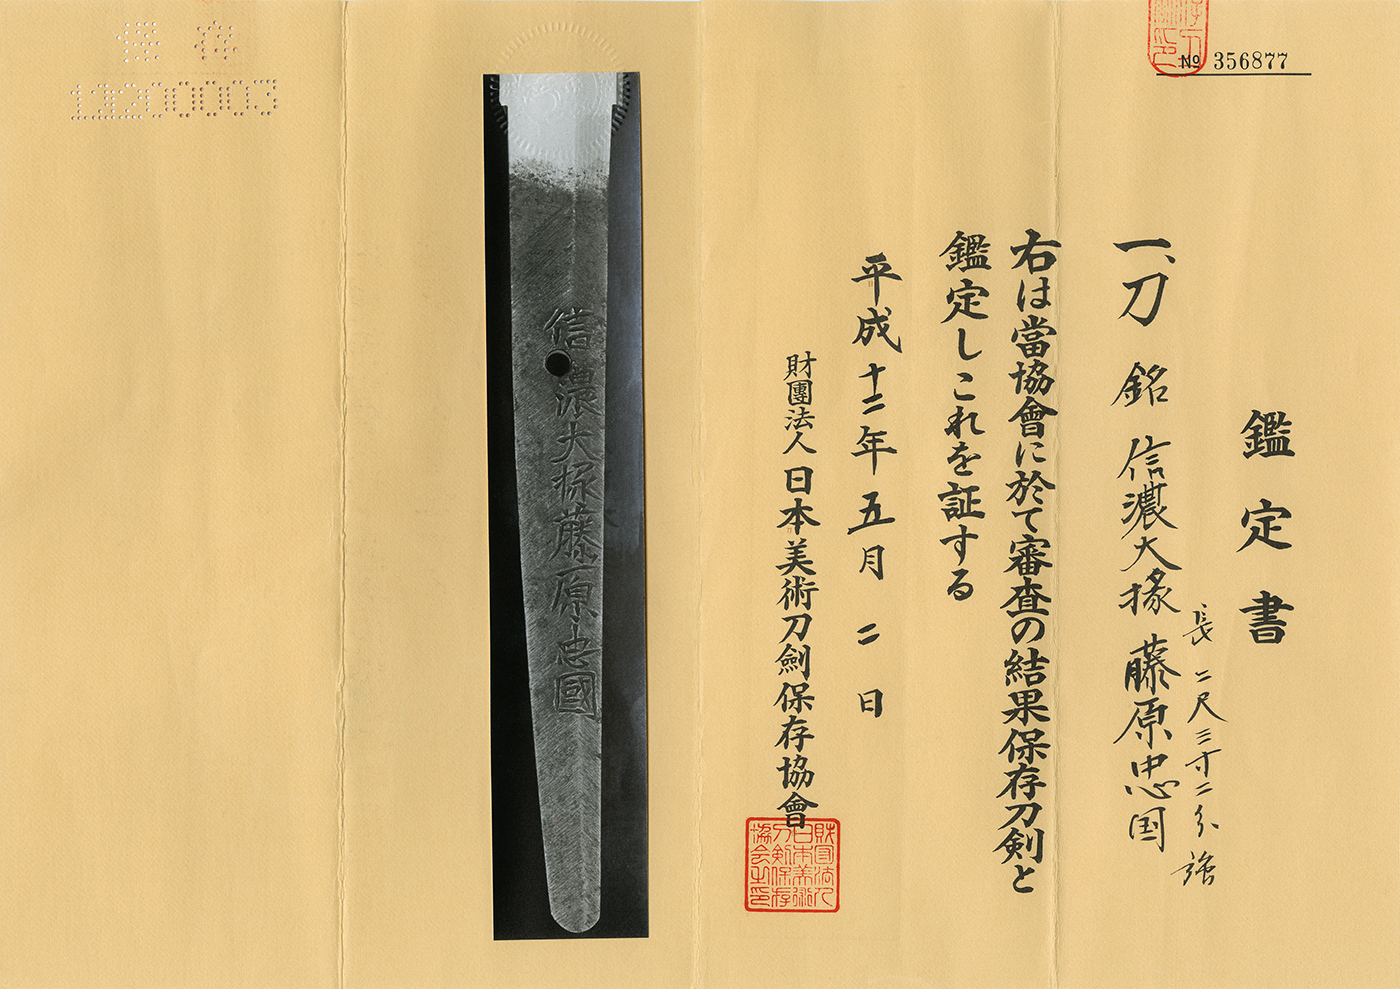 № 356877
鑑定書
一、刀 銘 信濃大掾藤原忠国
長二尺三寸二分強
右は當協會に於て審査の結果保存刀剣と
鑑定しこれを証する
平成十二年五月二日
財團法人日本美術刀劍保存協會
財団法人日本美術刀剣保存協会之印
信濃大掾藤原忠國
保存
1220003